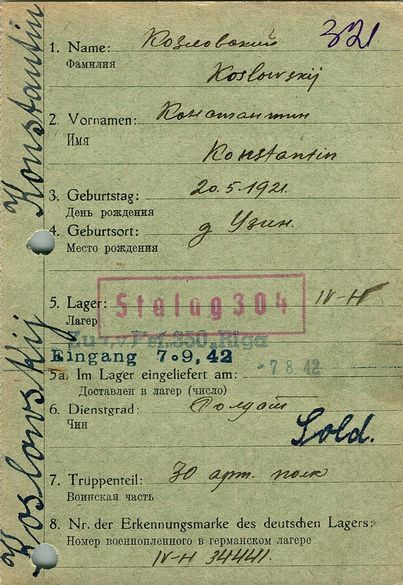 321
1. Name: Козловский
Фамилия
Koslowskij
2. Vornamen: Константин
Имя
Konstantin
3. Geburtstag: 20.5.1921.
День рождения
4. Geburtsort: д Узин.
Место рождения
5. Lager: Stalag 304 IV-H
Лагер
350, Riga
Eingang 7.9.42
-7.8.42
5a. Im Lager eingeliefert am:
Доставлен в лагер (число)
6. Dienstgrad: Солдат
Чин
Sold.
7. Truppenteil: 30 арт. полк
Воинская часть
8. Nr. der Erkennungsmarke des deutschen Lagers:
Номер военнопленного в германском лагере
IV-H 34441.
Koslowskij Konstantin